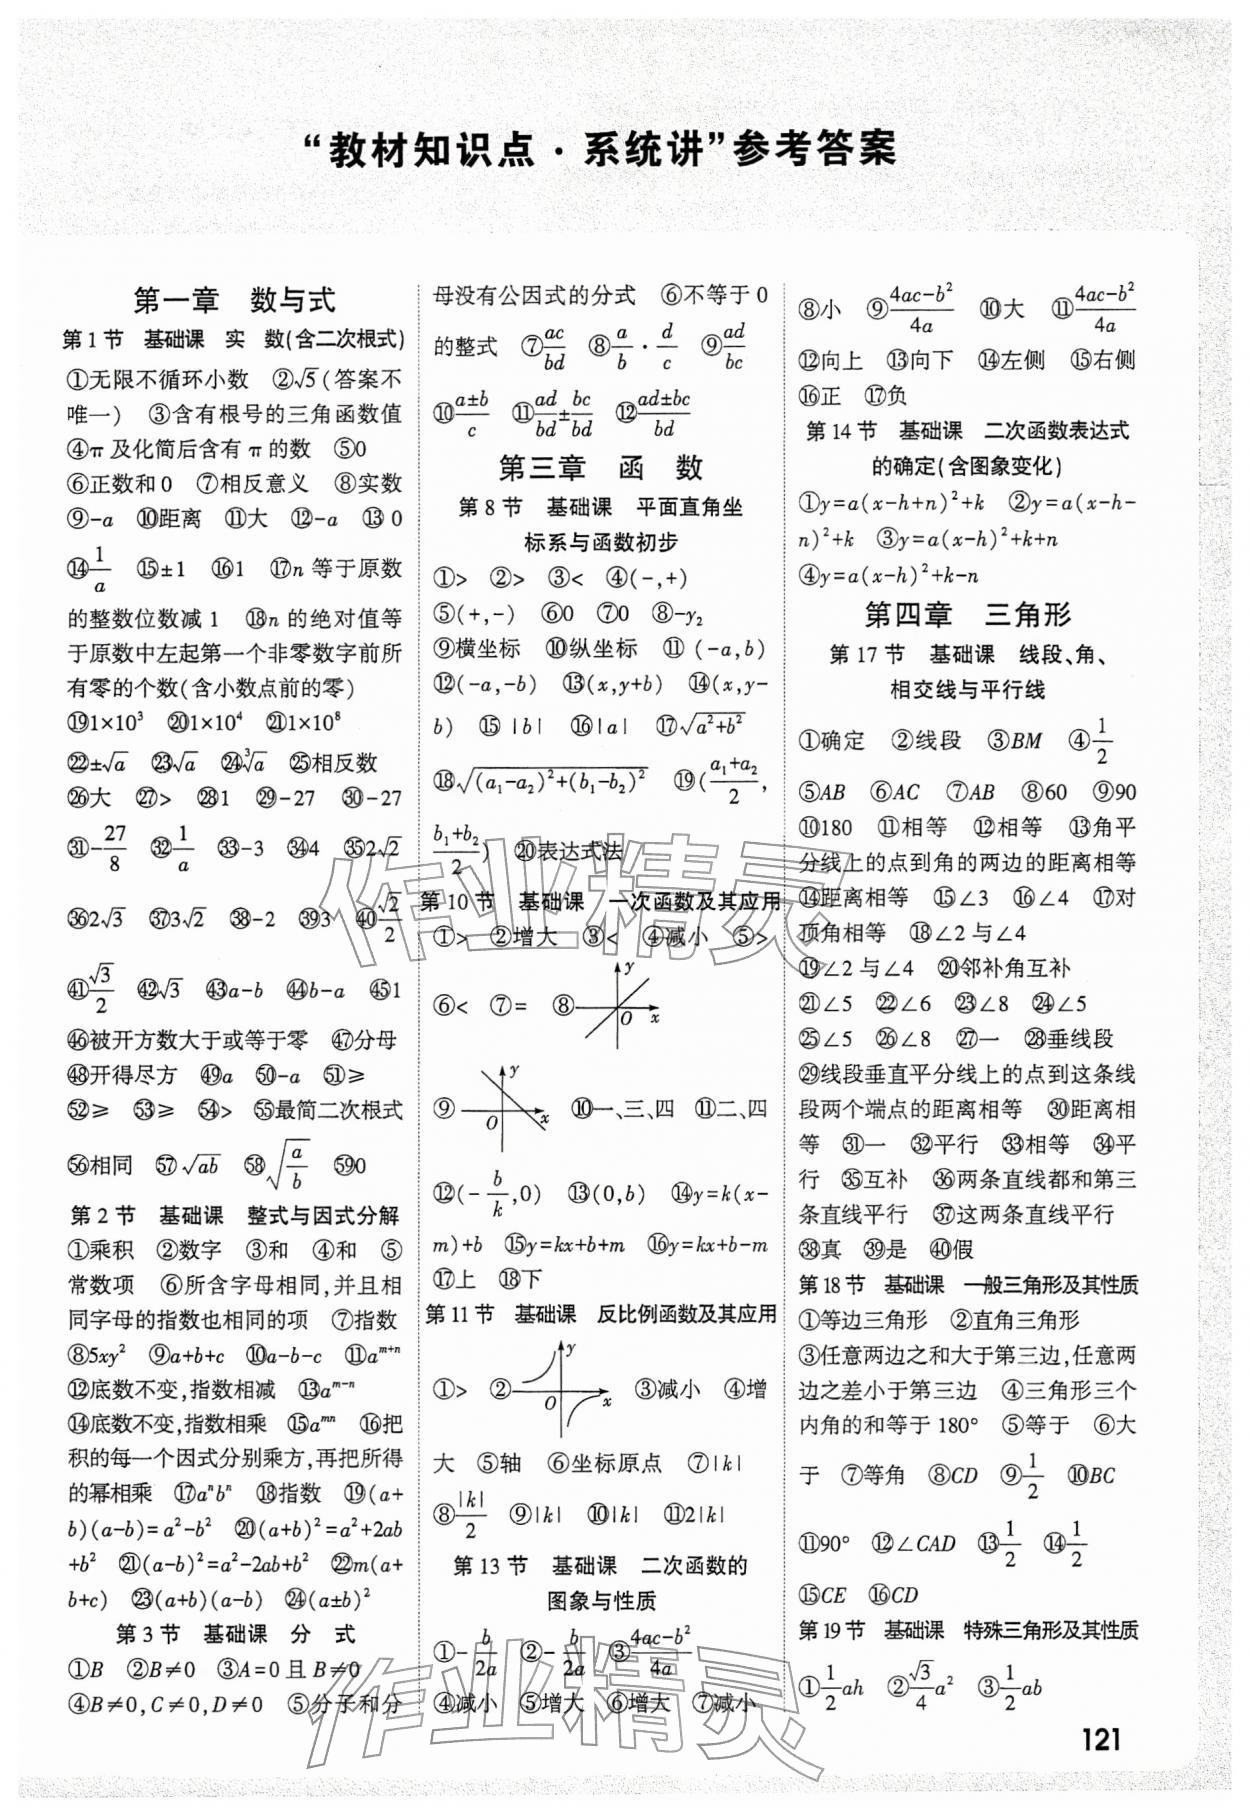 “教材知识点·系统讲”参考答案
第一章 数与式
第1节 基础课 实 数(含二次根式)
①无限不循环小数 ②√5(答案不
唯一) ③含有根号的三角函数值
④π及化简后含有π的数 ⑤0
⑥正数和0 ⑦相反意义 ⑧实数
⑨-a ⑩距离 ⑪大 ⑫-a ⑬0
⑭1/a ⑮±1 ⑯1 ⑰n等于原数
的整数位数减1 ⑱n的绝对值等
于原数中左起第一个非零数字前所
有零的个数(含小数点前的零)
⑲1×10³ ⑳1×10⁴ ㉑1×10⁸
㉒±√a ㉓√a ㉔∛a ㉕相反数
㉖大 ㉗> ㉘1 ㉙-27 ㉚-27
㉛-27/8 ㉜1/a ㉝-3 ㉞4 ㉟2√2
㊱2√3 ㊲3√2 ㊳-2 ㊴3 ㊵√2/2
㊶√3/2 ㊷√3 ㊸a-b ㊹b-a ㊺1
㊻被开方数大于或等于零 ㊼分母
㊽开得尽方 ㊾a ㊿-a 51≥
52≥ 53≥ 54> 55最简二次根式
56相同 57√ab 58√(a/b) 590
第2节 基础课 整式与因式分解
①乘积 ②数字 ③和 ④和 ⑤
常数项 ⑥所含字母相同,并且相
同字母的指数也相同的项 ⑦指数
⑧5xy² ⑨a+b+c ⑩a-b-c ⑪aᵐ⁺ⁿ
⑫底数不变,指数相减 ⑬aᵐ⁻ⁿ
⑭底数不变,指数相乘 ⑮aᵐⁿ ⑯把
积的每一个因式分别乘方,再把所得
的幂相乘 ⑰aⁿbⁿ ⑱指数 ⑲(a+
b)(a-b)=a²-b² ⑳(a+b)²=a²+2ab
+b² ㉑(a-b)²=a²-2ab+b² ㉒m(a+
b+c) ㉓(a+b)(a-b) ㉔(a±b)²
第3节 基础课 分 式
①B ②B≠0 ③A=0且B≠0
④B≠0,C≠0,D≠0 ⑤分子和分
母没有公因式的分式 ⑥不等于0
的整式 ⑦ac/bd ⑧a/b·d/c ⑨ad/bc
⑩(a±b)/c ⑪ad/bd±bc/bd ⑫(ad±bc)/bd
第三章 函 数
第8节 基础课 平面直角坐
标系与函数初步
①> ②> ③< ④(-,+)
⑤(+,-) ⑥0 ⑦0 ⑧-y₂
⑨横坐标 ⑩纵坐标 ⑪(-a,b)
⑫(-a,-b) ⑬(x,y+b) ⑭(x,y-
b) ⑮|b| ⑯|a| ⑰√(a²+b²)
⑱√((a₁-a₂)²+(b₁-b₂)²) ⑲((a₁+a₂)/2,
(b₁+b₂)/2) ⑳表达式法
第10节 基础课 一次函数及其应用
①> ②增大 ③< ④减小 ⑤>
⑥< ⑦= ⑧ y O x
⑨ y O x ⑩一、三、四 ⑪二、四
⑫(-b/k,0) ⑬(0,b) ⑭y=k(x-
m)+b ⑮y=kx+b+m ⑯y=kx+b-m
⑰上 ⑱下
第11节 基础课 反比例函数及其应用
①> ② y O x ③减小 ④增
大 ⑤轴 ⑥坐标原点 ⑦|k|
⑧|k|/2 ⑨|k| ⑩|k| ⑪2|k|
第13节 基础课 二次函数的
图象与性质
①-b/2a ②-b/2a ③(4ac-b²)/4a
④减小 ⑤增大 ⑥增大 ⑦减小
⑧小 ⑨(4ac-b²)/4a ⑩大 ⑪(4ac-b²)/4a
⑫向上 ⑬向下 ⑭左侧 ⑮右侧
⑯正 ⑰负
第14节 基础课 二次函数表达式
的确定(含图象变化)
①y=a(x-h+n)²+k ②y=a(x-h-
n)²+k ③y=a(x-h)²+k+n
④y=a(x-h)²+k-n
第四章 三角形
第17节 基础课 线段、角、
相交线与平行线
①确定 ②线段 ③BM ④1/2
⑤AB ⑥AC ⑦AB ⑧60 ⑨90
⑩180 ⑪相等 ⑫相等 ⑬角平
分线上的点到角的两边的距离相等
⑭距离相等 ⑮∠3 ⑯∠4 ⑰对
顶角相等 ⑱∠2与∠4
⑲∠2与∠4 ⑳邻补角互补
㉑∠5 ㉒∠6 ㉓∠8 ㉔∠5
㉕∠5 ㉖∠8 ㉗一 ㉘垂线段
㉙线段垂直平分线上的点到这条线
段两个端点的距离相等 ㉚距离相
等 ㉛一 ㉜平行 ㉝相等 ㉞平
行 ㉟互补 ㊱两条直线都和第三
条直线平行 ㊲这两条直线平行
㊳真 ㊴是 ㊵假
第18节 基础课 一般三角形及其性质
①等边三角形 ②直角三角形
③任意两边之和大于第三边,任意两
边之差小于第三边 ④三角形三个
内角的和等于180° ⑤等于 ⑥大
于 ⑦等角 ⑧CD ⑨1/2 ⑩BC
⑪90° ⑫∠CAD ⑬1/2 ⑭1/2
⑮CE ⑯CD
第19节 基础课 特殊三角形及其性质
①1/2ah ②√3/4a² ③1/2ab
121
作业精灵
作业精灵